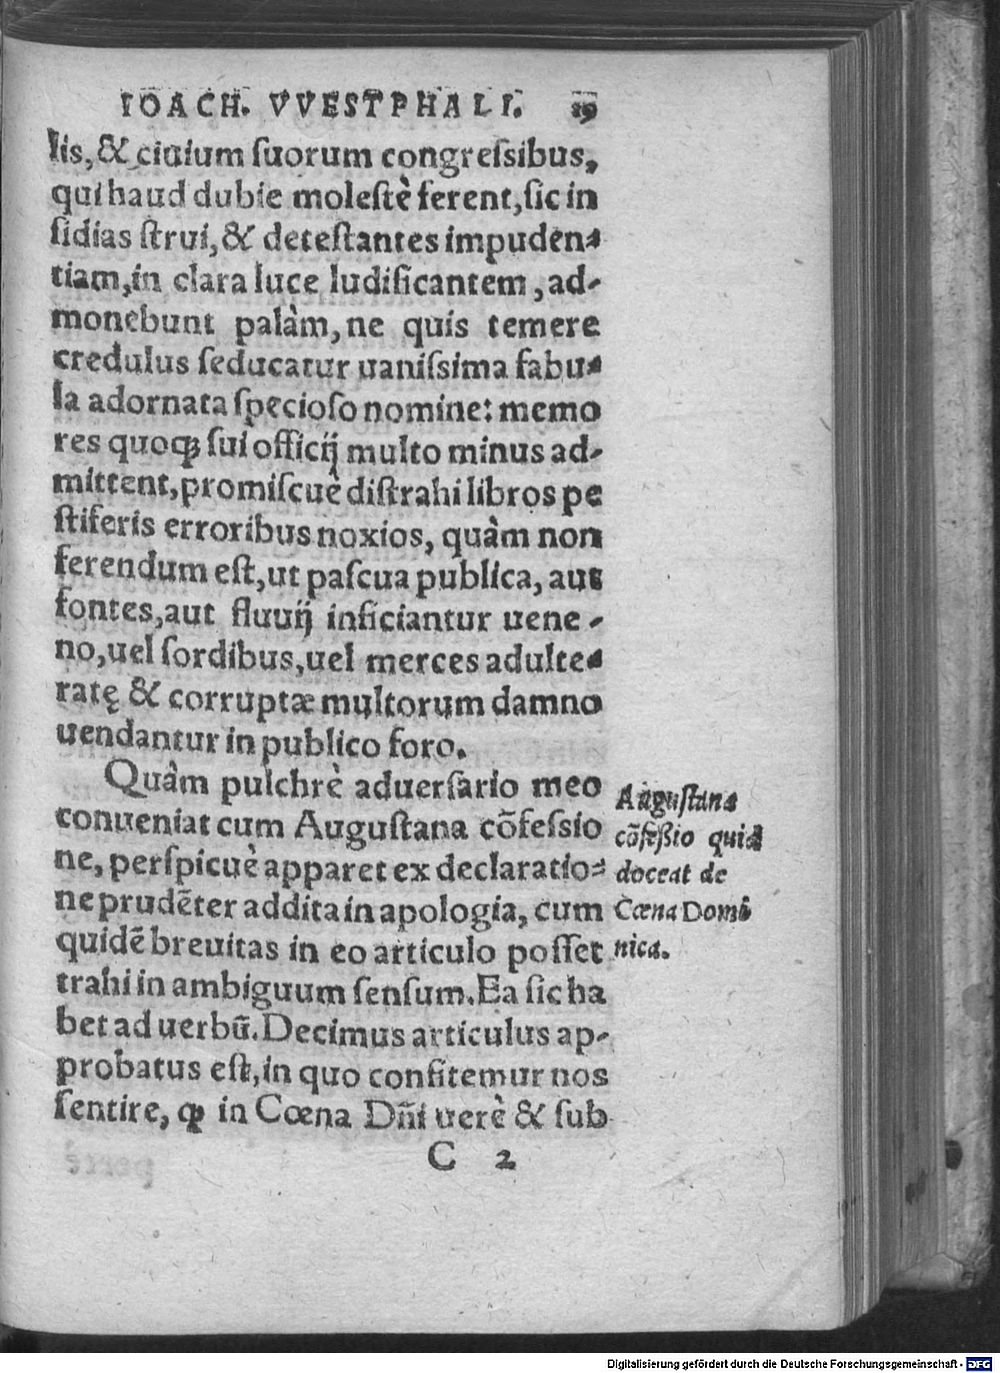 IOACH. VVESTPHALI. 19
lis, & ciuium suorum congressibus,
qui haud dubie molestè ferent, sic in
sidias strui, & detestantes impuden-
tiam, in clara luce ludificantem, ad-
monebunt palàm, ne quis temere
credulus seducatur uanissima fabu-
la adornata specioso nomine: memo
res quoqȝ sui officij multo minus ad-
mittent, promiscuè distrahi libros pe
stiferis erroribus noxios, quàm non
ferendum est, ut pascua publica, aut
fontes, aut fluuij inficiantur uene-
no, uel sordibus, uel merces adulte-
ratę & corruptæ multorum damno
uendantur in publico foro.
Quàm pulchrè aduersario meo
conueniat cum Augustana cõfessio
ne, perspicuè apparet ex declaratio-
ne prudẽter addita in apologia, cum
quidẽ breuitas in eo articulo posset
trahi in ambiguum sensum. Ea sic ha
bet ad uerbũ. Decimus articulus ap-
probatus est, in quo confitemur nos
sentire, ꝙ in Cœna Dñi uerè & sub
C 2
Augustana
cõfeßio quid
doceat de
Cœna Domi
nica.
Digitalisierung gefördert durch die Deutsche Forschungsgemeinschaft - DFG